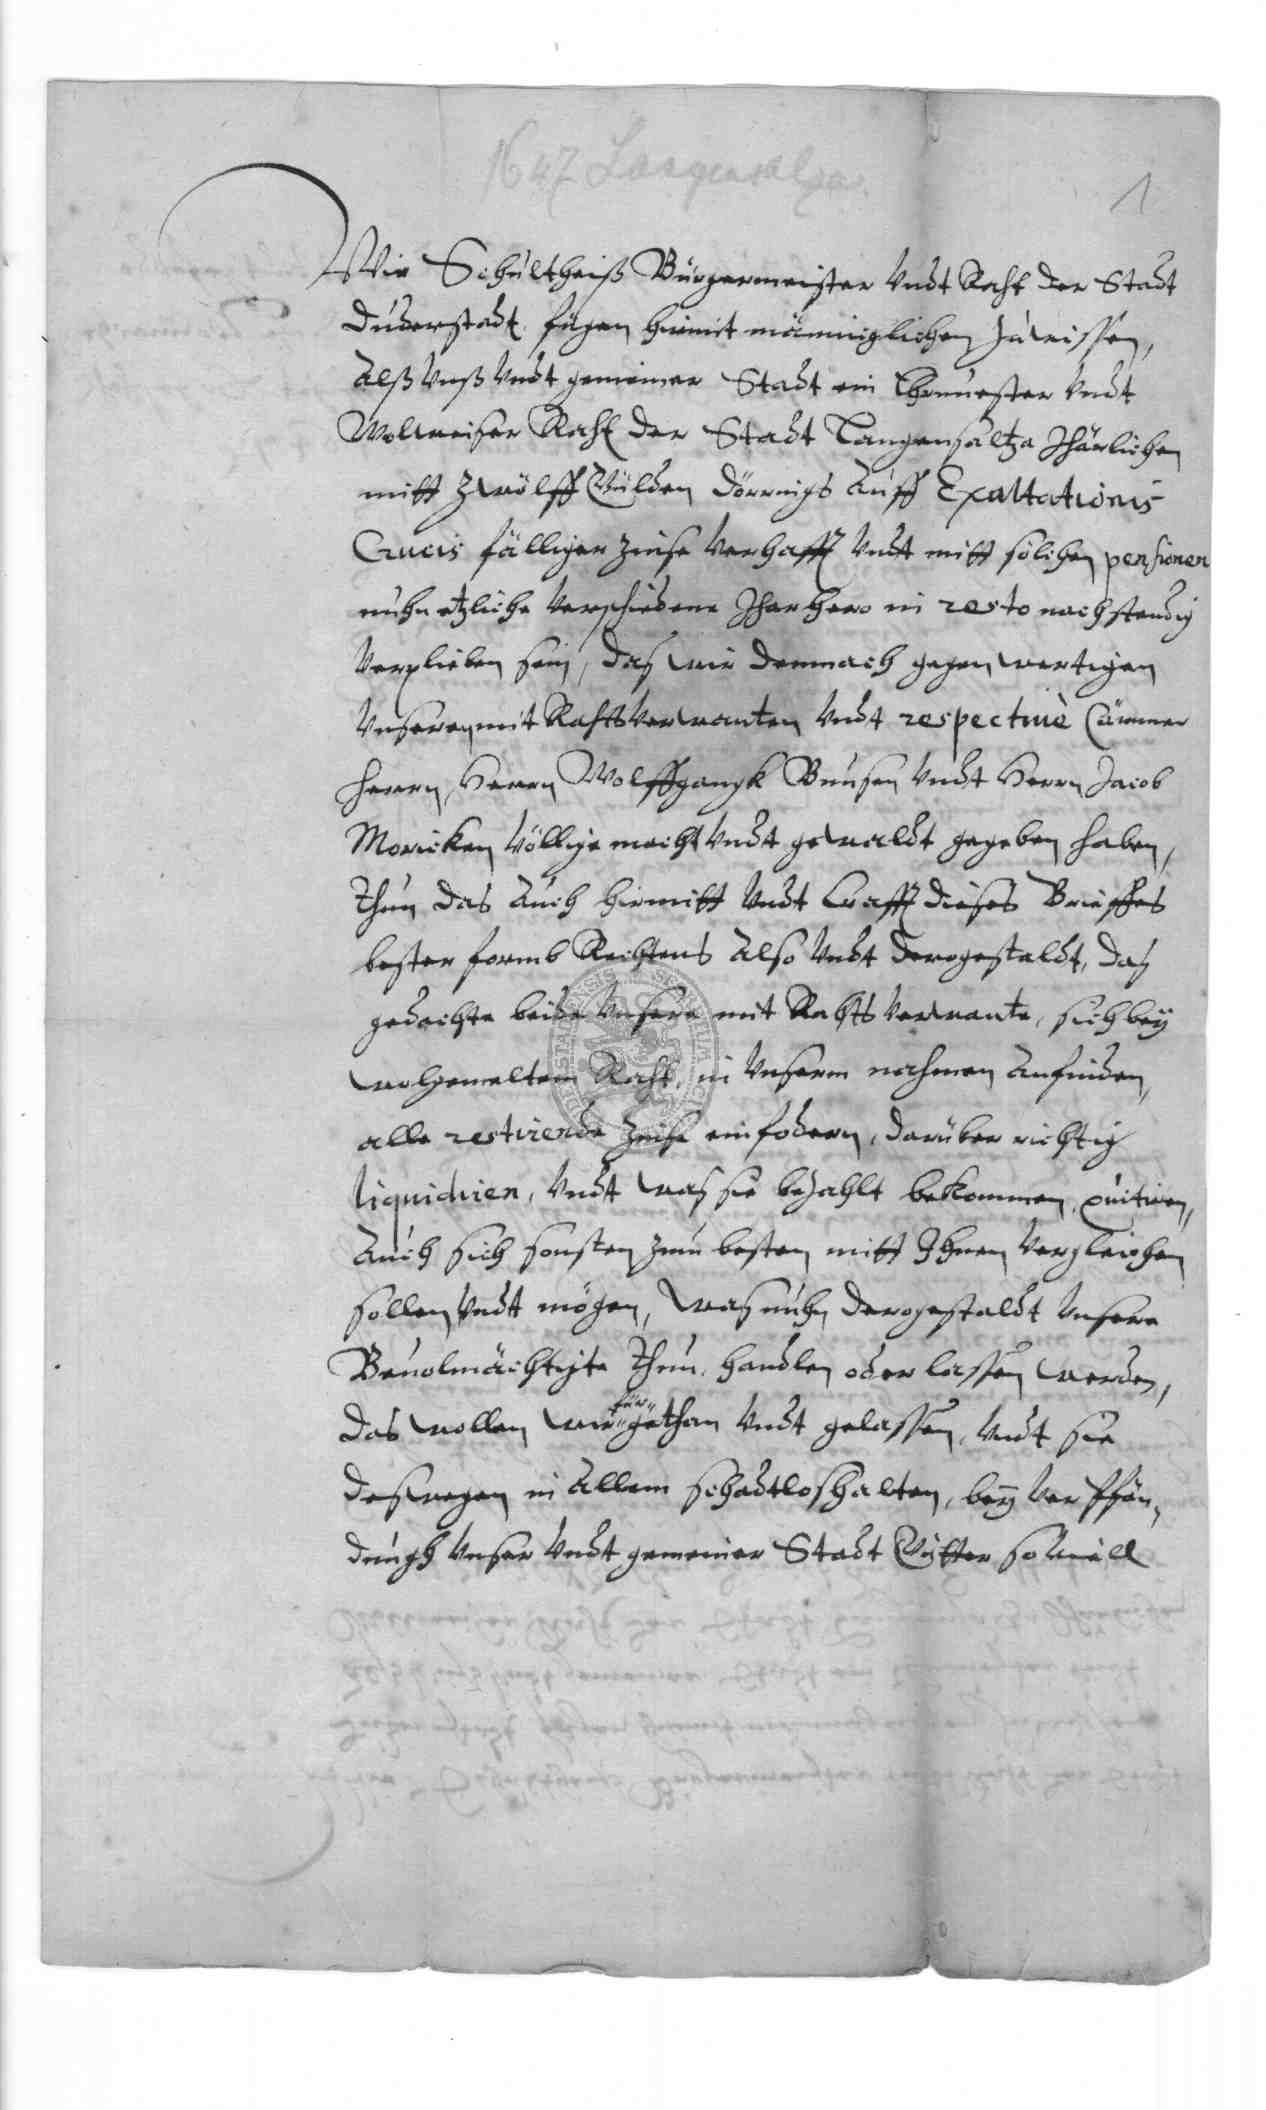 1647 Langensalza.
1
Wir Schultheiß Bürgermeister Undt Raht der Stadt
Duderstadt. fügen hiemit männiglichen zu wissen,
Alß Unß Undt gemeiner Stadt ein Ehrnuester Undt
Wolweiser Raht der Stadt Langensaltza Jhärlichen
mitt Zwölff Gülden Dörrings Auff Exaltationis
Crucis fälliger Zinse Verhafft Undt mitt solchen pensionen
nuhn etzliche Verschiedene Jhar hero in resto nachstendig
Verplieben sein, das wir demnach gegenwertigen
Unseren mit Rahtts Verwanten Undt respectiuè Cämmer
herrn, Herrn Wolffgangk Bunsen Undt Herrn Jacob
Moricken Völlige macht Undt gewaldt gegeben haben,
Thun das Auch hirmitt Undt Crafft dieses Brieffes
bester formb Rechtens Also Undt derogestaldt, das
gedachte beide Unsere mit Rahtts Verwante, sich bey
wolgemeltem Raht, in Unserm nahmen Anfinden,
alle restirende Zinse einfodern, darüber richtig
liquidiren, Undt was sie bezahlt bekommen, quitiren,
Auch sich sonsten zum besten mitt Ihnen Vergleichen
sollen Undt mögen, Was nuhn derogestaldt Unsere
Beuolmächtigte Thun, handlen oder lassen werden,
das wollen wir für gethan Undt gelassen, Undt sie
deswegen in Allem schadtloshalten, bey Verpfän-
dungh Unser Undt gemeiner Stadt Gütter so Uiell